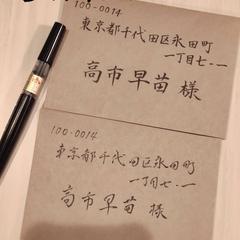 100-0014
東京都千代田区永田町
一丁目七・一
高市早苗 様
100-0014
東京都千代田区永田町
一丁目七・一
高市早苗 様